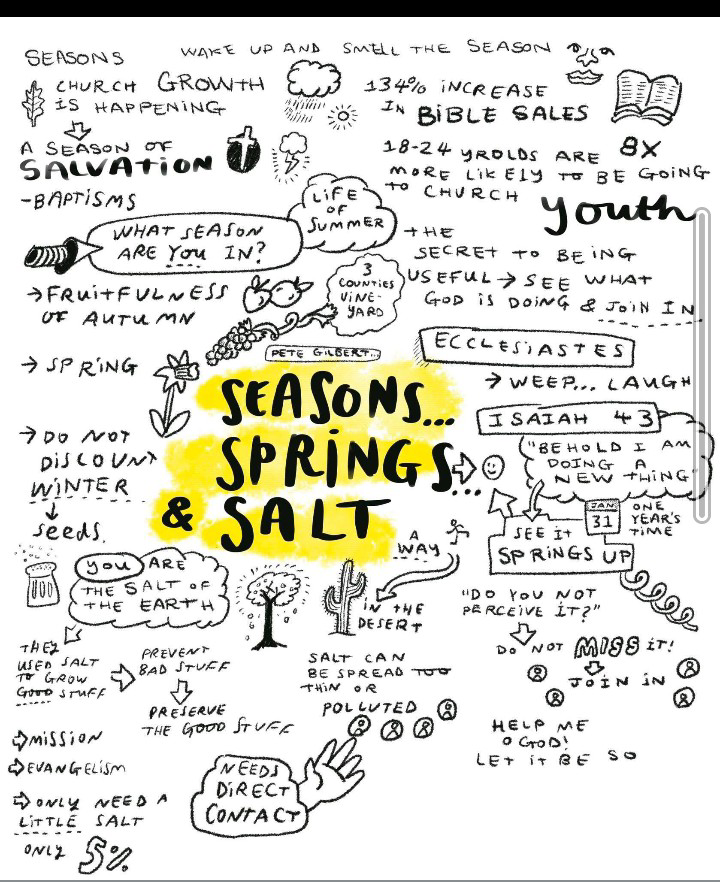 SEASONS
WAKE UP AND SMELL THE SEASON
CHURCH GROWTH
IS HAPPENING
A SEASON OF
SALVATION
-BAPTISMS
134% INCREASE
IN BIBLE SALES
18-24 YROLDS ARE 8X
MORE LIKELY TO BE GOING
TO CHURCH
youth
LIFE
OF
SUMMER
WHAT SEASON
ARE YOU IN?
THE
SECRET TO BEING
USEFUL → SEE WHAT
GOD IS DOING & JOIN IN
→ FRUITFULNESS
OF AUTUMN
3
COUNTIES
VINE-
YARD
→ SPRING
PETE GILBERT...
SEASONS...
SPRINGS...
& SALT
ECCLESIASTES
→ WEEP... LAUGH
ISAIAH 43
"BEHOLD I AM
DOING A
NEW THING"
→ DO NOT
DISCOUNT
WINTER
seeds.
JAN
31
ONE
YEAR'S
TIME
SEE IT
SPRINGS UP
"DO YOU NOT
PERCEIVE IT?"
DO NOT MISS IT!
JOIN IN
HELP ME
O GOD!
LET IT BE SO
A
WAY
IN THE
DESERT
YOU ARE
THE SALT OF
THE EARTH
THEY
USED SALT
TO GROW
GOOD STUFF
PREVENT
BAD STUFF
PRESERVE
THE GOOD STUFF
SALT CAN
BE SPREAD TOO
THIN OR
POLLUTED
NEEDS
DIRECT
CONTACT
⇨ MISSION
⇨ EVANGELISM
⇨ ONLY NEED A
LITTLE SALT
ONLY 5%